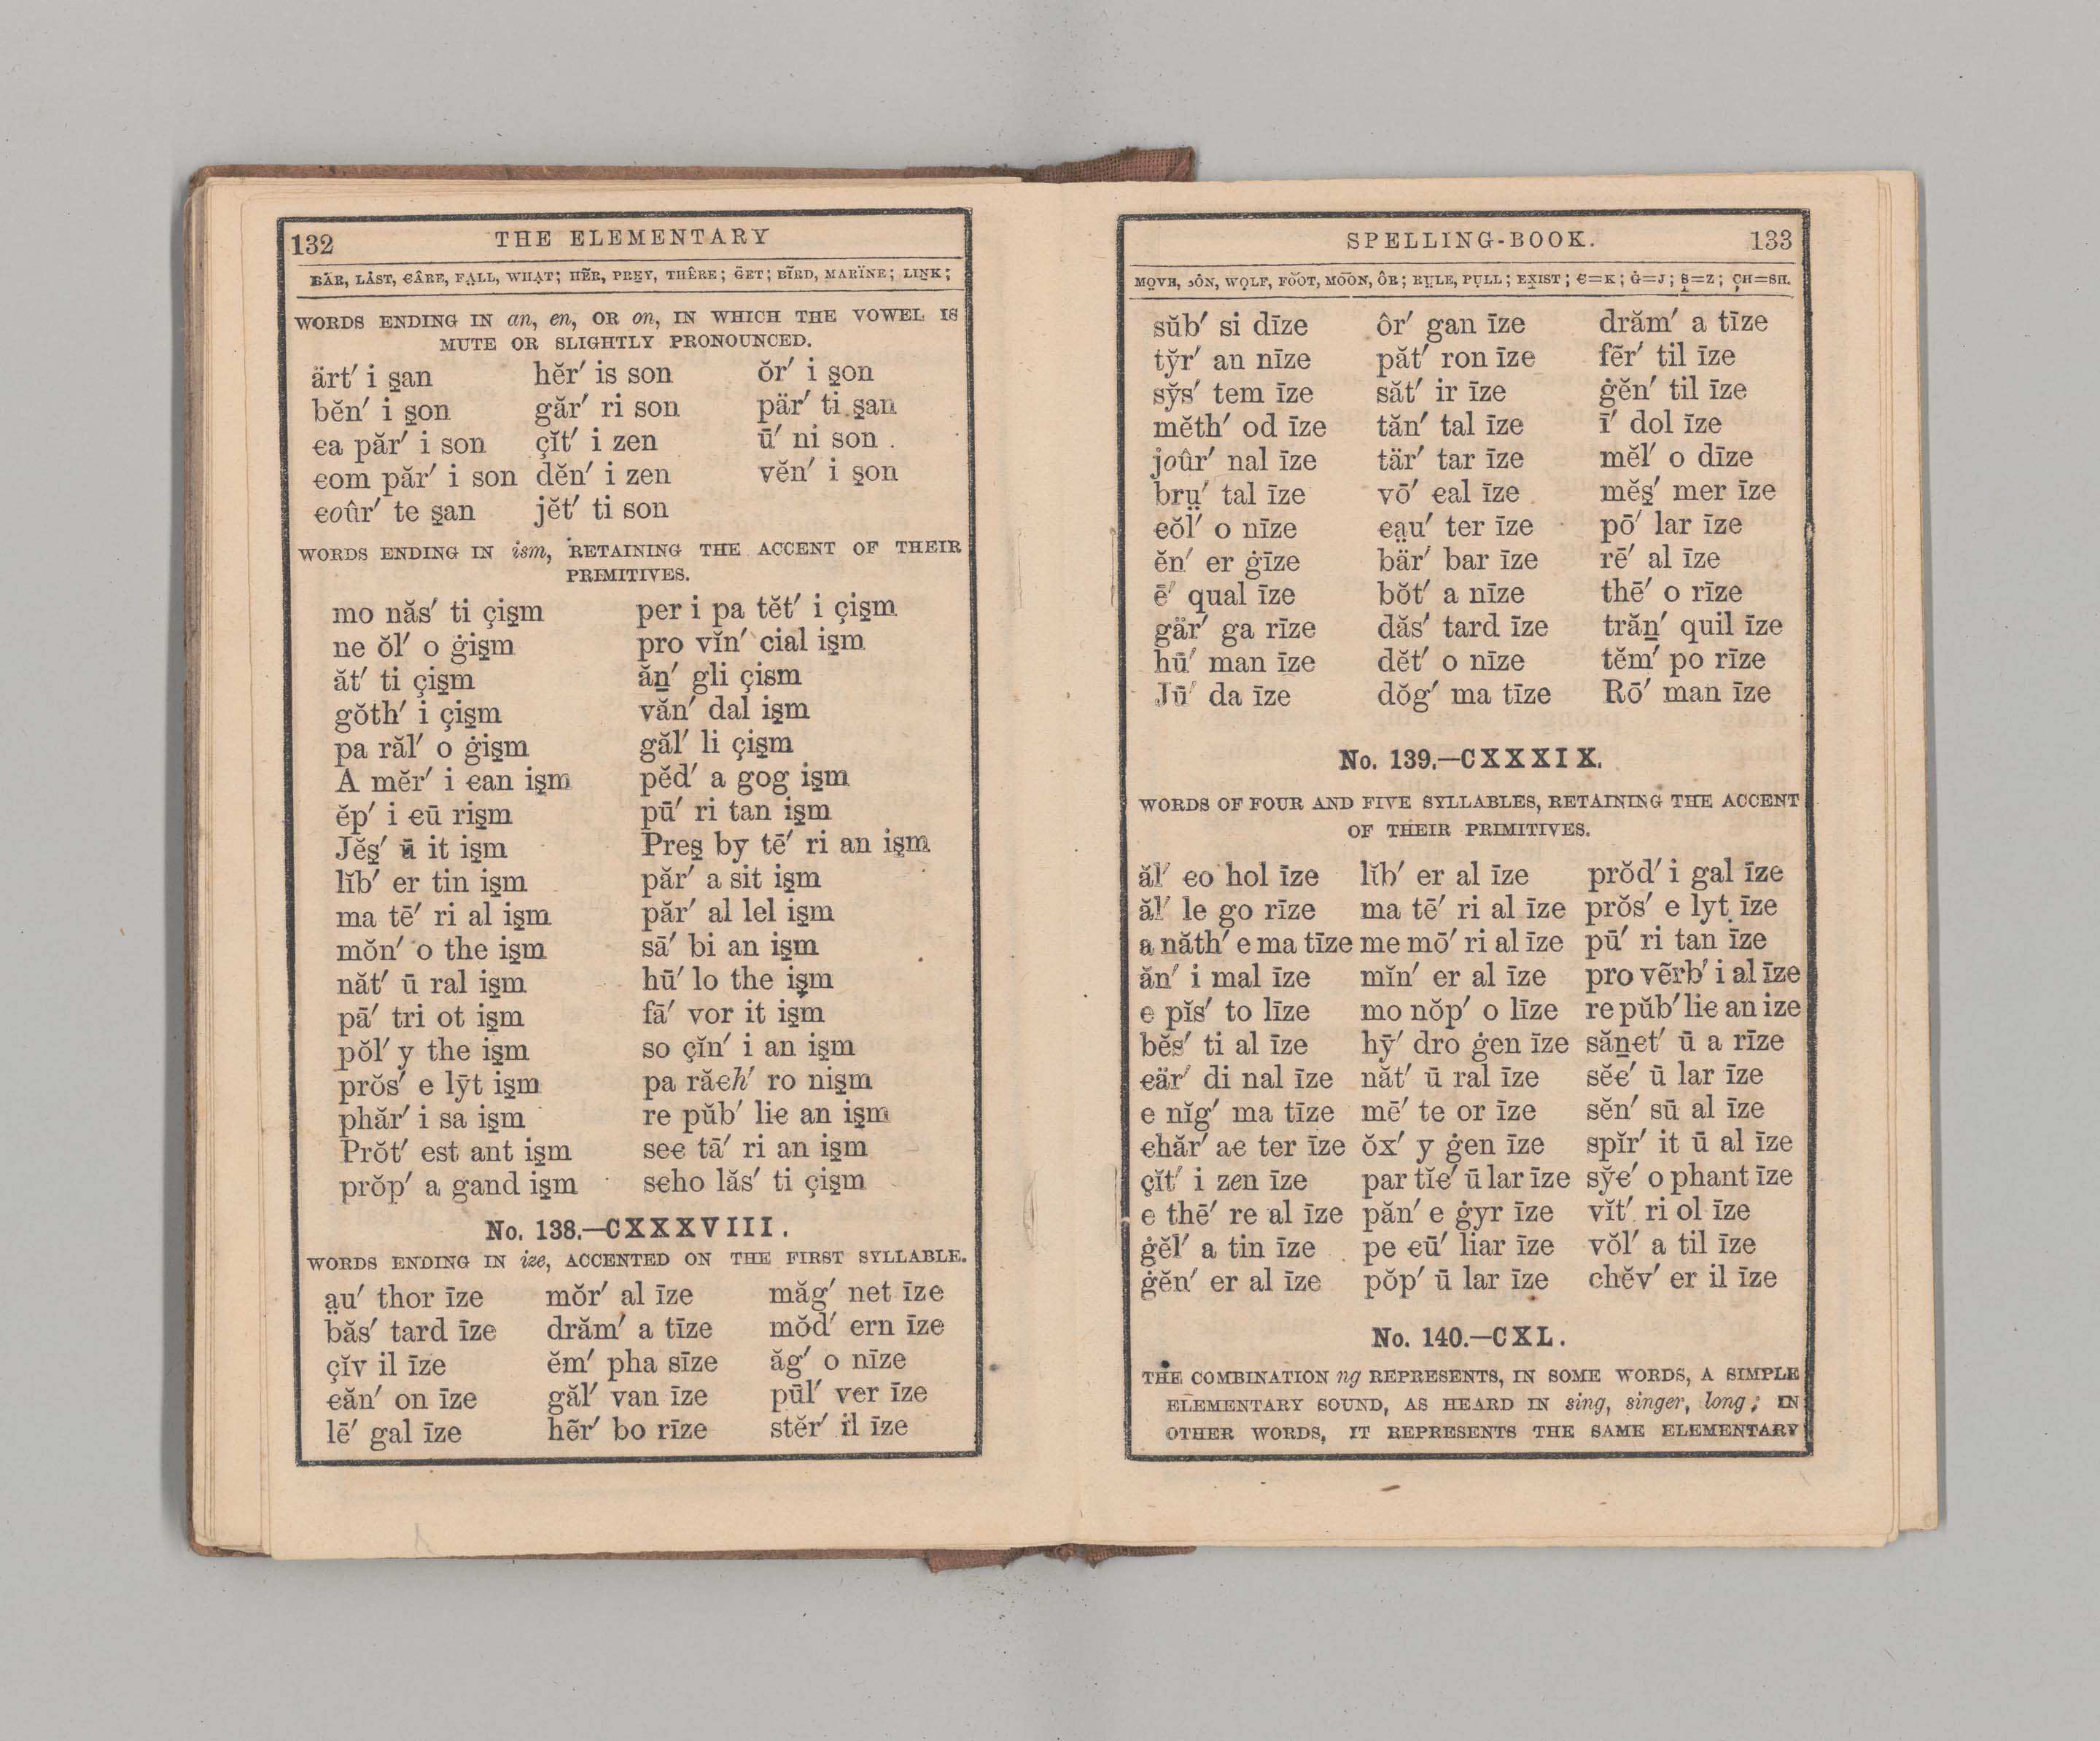 132 THE ELEMENTARY
BÄR, LȦST, ꞒÂRE, FA̤LL, WHA̤T; HẼR, PRE̱Y, THÊRE; ḠET; BĨRD, MARÏNE; LIṈK;
WORDS ENDING IN an, en, OR on, IN WHICH THE VOWEL IS
MUTE OR SLIGHTLY PRONOUNCED.
ärt′ i s̱an hĕr′ is son ŏr′ i s̱on
bĕn′ i s̱on găr′ ri son pär′ ti s̱an
ꞓa păr′ i son çĭt′ i zen ū′ ni son
ꞓom păr′ i son dĕn′ i zen vĕn′ i s̱on
ꞓoûr′ te s̱an jĕt′ ti son
WORDS ENDING IN ism, RETAINING THE ACCENT OF THEIR
PRIMITIVES.
mo năs′ ti çis̱m per i pa tĕt′ i çis̱m
ne ŏl′ o ġis̱m pro vĭn′ cial is̱m
ăt′ ti çis̱m ăṉ′ gli çism
gŏth′ i çis̱m văn′ dal is̱m
pa răl′ o ġis̱m găl′ li çis̱m
A mĕr′ i ꞓan is̱m pĕd′ a gog is̱m
ĕp′ i ꞓū ris̱m pū′ ri tan is̱m
Jĕs̱′ ū it is̱m Pres̱ by tē′ ri an is̱m
lĭb′ er tin is̱m păr′ a sit is̱m
ma tē′ ri al is̱m păr′ al lel is̱m
mŏn′ o the is̱m sā′ bi an is̱m
năt′ ū ral is̱m hū′ lo the is̱m
pā′ tri ot is̱m fā′ vor it is̱m
pŏl′ y the is̱m so çĭn′ i an is̱m
prŏs′ e lȳt is̱m pa răꞓh′ ro nis̱m
phăr′ i sa is̱m re pŭb′ liꞓ an is̱m
Prŏt′ est ant is̱m seꞓ tā′ ri an is̱m
prŏp′ a gand is̱m sꞓho lăs′ ti çis̱m
No. 138.—CXXXVIII.
WORDS ENDING IN ize, ACCENTED ON THE FIRST SYLLABLE.
a̤u′ thor īze mŏr′ al īze măg′ net īze
băs′ tard īze drăm′ a tīze mŏd′ ern īze
çĭv il īze ĕm′ pha sīze ăg′ o nīze
ꞓăn′ on īze găl′ van īze pūl′ ver īze
lē′ gal īze hẽr′ bo rīze stĕr′ il īze
SPELLING-BOOK. 133
MO̤VE, SȮN, WO̤LF, FO͝OT, MO͞ON, ÔR; RṲLE, PU̱LL; EX̱IST; Ꞓ=K; Ġ=J; S̱=Z; ÇH=SH.
sŭb′ si dīze ôr′ gan īze drăm′ a tīze
ty̆r′ an nīze păt′ ron īze fẽr′ til īze
sy̆s′ tem īze săt′ ir īze ġĕn′ til īze
mĕth′ od īze tăn′ tal īze ī′ dol īze
joûr′ nal īze tär′ tar īze mĕl′ o dīze
brṳ′ tal īze vō′ ꞓal īze mĕs̱′ mer īze
ꞓŏl′ o nīze ꞓa̤u′ ter īze pō′ lar īze
ĕn′ er ġīze bär′ bar īze rē′ al īze
ē′ qual īze bŏt′ a nīze thē′ o rīze
gär′ ga rīze dăs′ tard īze trăṉ′ quil īze
hū′ man īze dĕt′ o nīze tĕm′ po rīze
Jū′ da īze dŏg′ ma tīze Rō′ man īze
No. 139.—CXXXIX.
WORDS OF FOUR AND FIVE SYLLABLES, RETAINING THE ACCENT
OF THEIR PRIMITIVES.
ăl′ ꞓo hol īze lĭb′ er al īze prŏd′ i gal īze
ăl′ le go rīze ma tē′ ri al īze prŏs′ e lyt īze
a năth′ e ma tīze me mō′ ri al īze pū′ ri tan īze
ăn′ i mal īze mĭn′ er al īze pro vẽrb′ i al īze
e pĭs′ to līze mo nŏp′ o līze re pŭb′ liꞓ an ize
bĕs′ ti al īze hȳ′ dro ġen īze săṉꞓt′ ū a rīze
ꞓär′ di nal īze năt′ ū ral īze sĕꞓ′ ū lar īze
e nĭg′ ma tīze mē′ te or īze sĕn′ sū al īze
ꞓhăr′ aꞓ ter īze ŏx′ y ġen īze spĭr′ it ū al īze
çĭt′ i zen īze par tĭꞓ′ ū lar īze sy̆ꞓ′ o phant īze
e thē′ re al īze păn′ e ġyr īze vĭt′ ri ol īze
ġĕl′ a tin īze pe ꞓū′ liar īze vŏl′ a til īze
ġĕn′ er al īze pŏp′ ū lar īze chĕv′ er il īze
No. 140.—CXL.
THE COMBINATION ng REPRESENTS, IN SOME WORDS, A SIMPLE
ELEMENTARY SOUND, AS HEARD IN sing, singer, long; IN
OTHER WORDS, IT REPRESENTS THE SAME ELEMENTARY